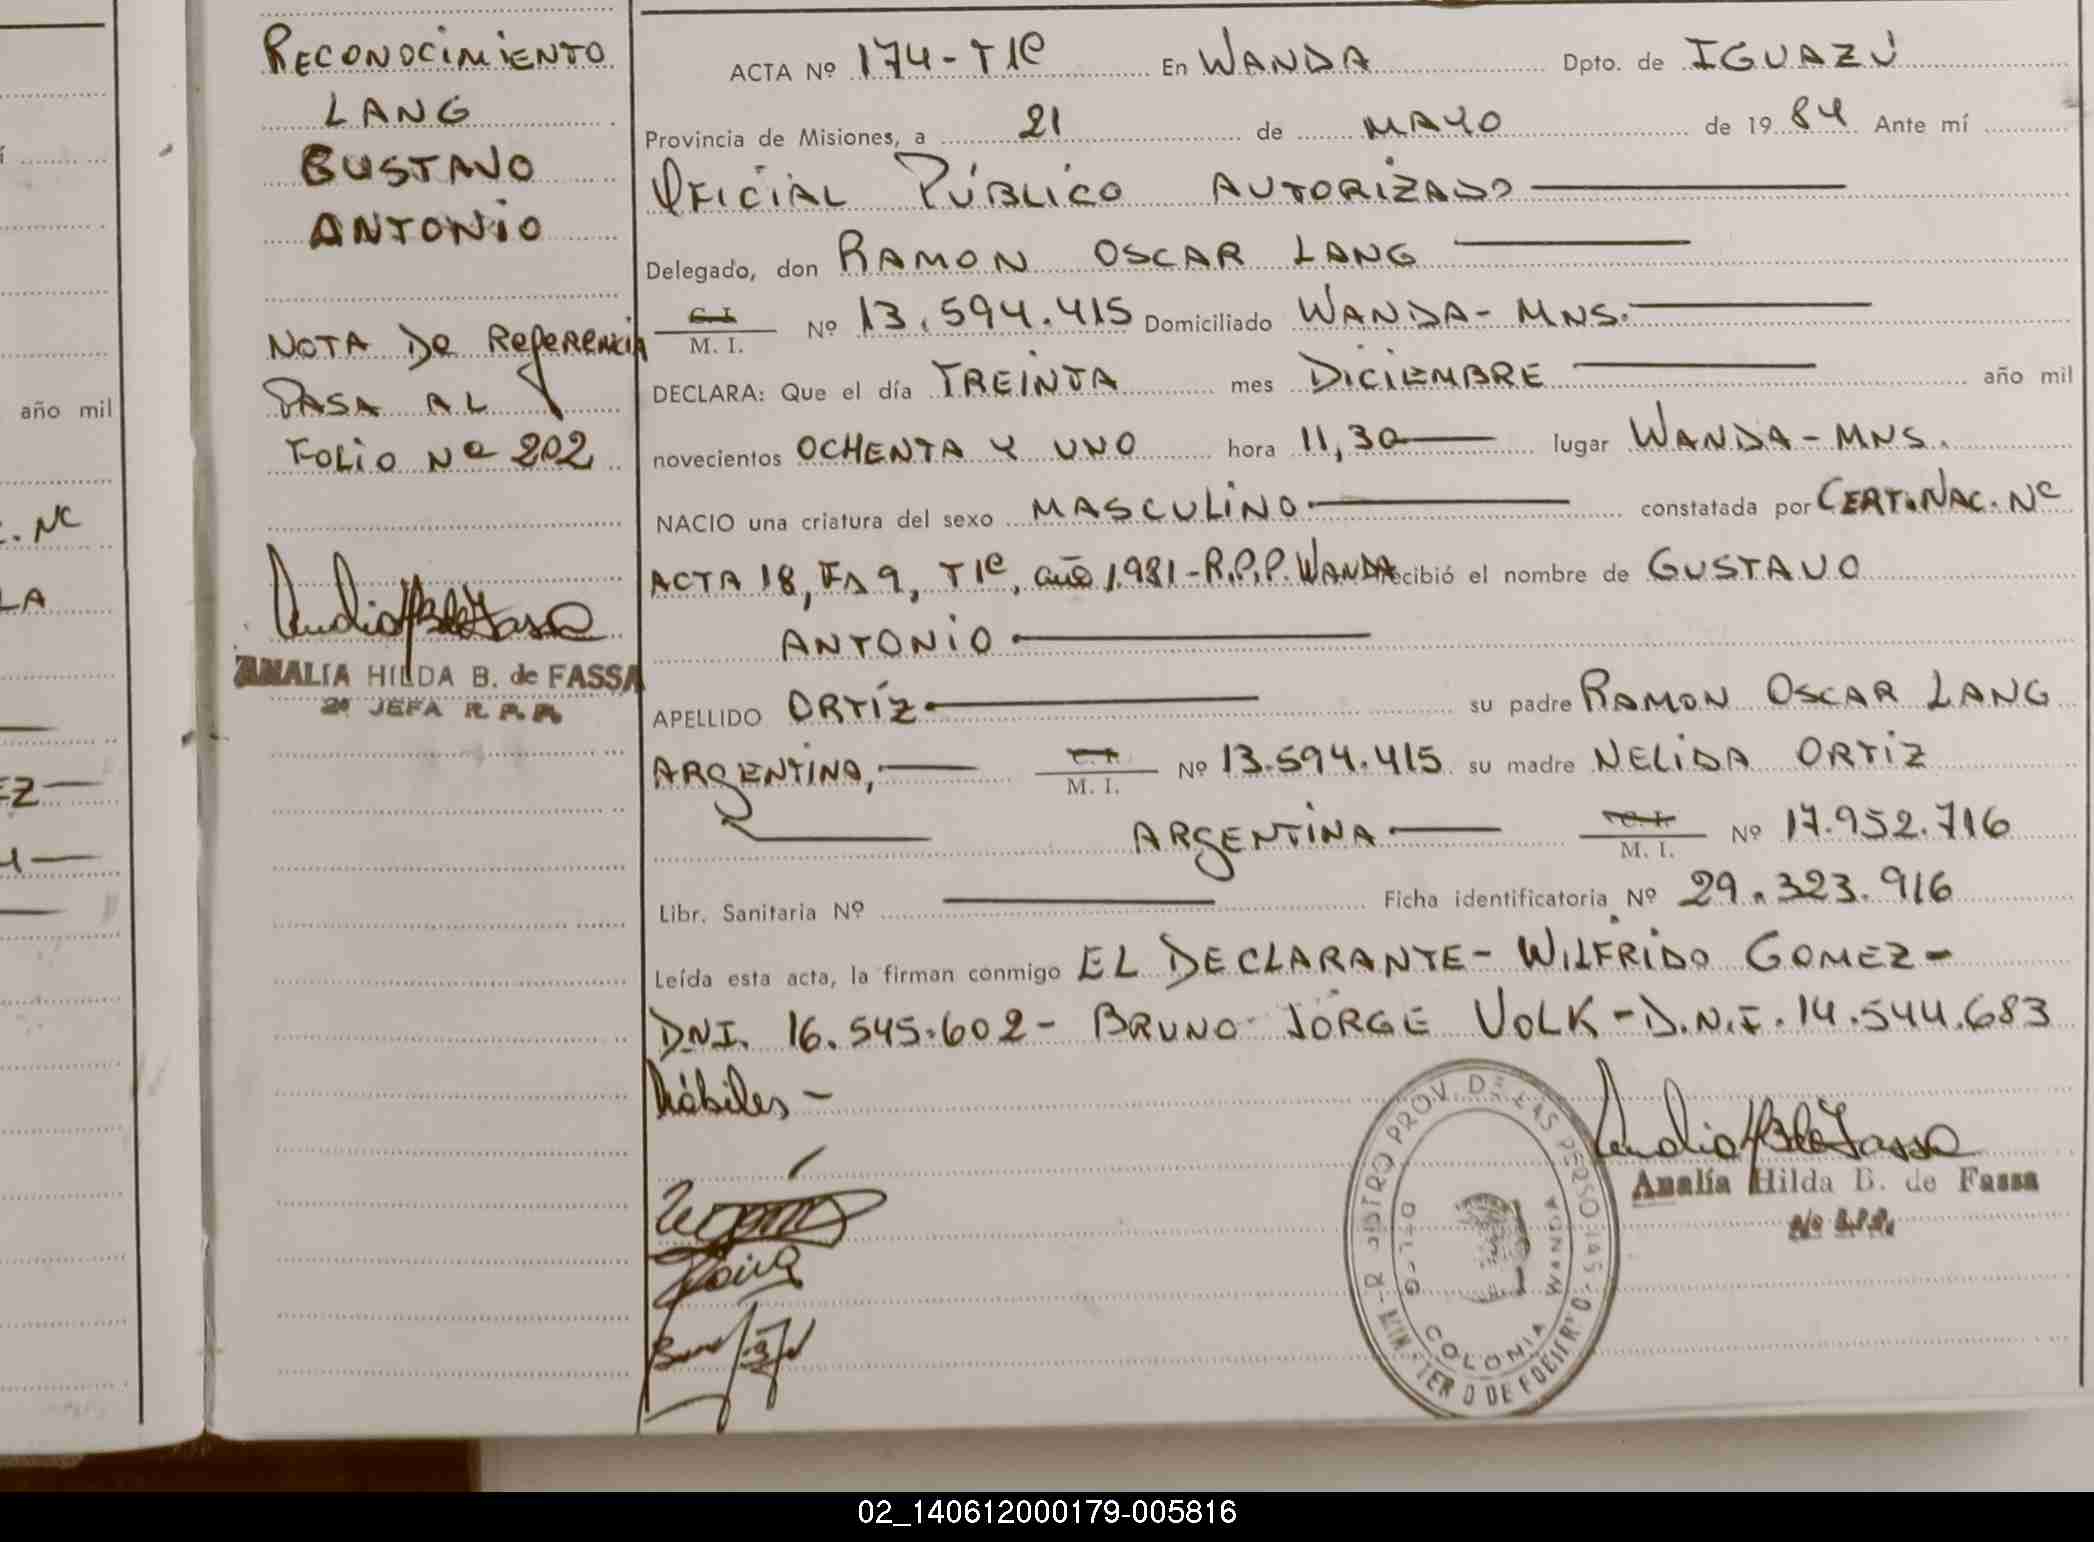 RECONOCIMIENTO
LANG
GUSTAVO
ANTONIO
NOTA DE REFERENCIA
PASA AL
FOLIO Nº 202
ANALIA HILDA B. de FASSA
2ª JEFA R. P. P.
ACTA Nº 174-T1º En WANDA Dpto. de IGUAZÚ
Provincia de Misiones, a 21 de MAYO de 1984 Ante mí
OFICIAL PÚBLICO AUTORIZADO
Delegado, don RAMON OSCAR LANG
C.I. / M. I. Nº 13.594.415 Domiciliado WANDA-MNS.
DECLARA: Que el día TREINTA mes DICIEMBRE año mil
novecientos OCHENTA Y UNO hora 11,30 lugar WANDA-MNS.
NACIO una criatura del sexo MASCULINO constatada por CERT.NAC. Nº
ACTA 18, Fº 9, T1º, año 1.981-R.P.P. WANDA recibió el nombre de GUSTAVO
ANTONIO
APELLIDO ORTÍZ su padre RAMON OSCAR LANG
ARGENTINA, C.I. / M. I. Nº 13.594.415 su madre NELIDA ORTIZ
ARGENTINA C.I. / M. I. Nº 17.952.716
Libr. Sanitaria Nº Ficha identificatoria Nº 29.323.916
Leída esta acta, la firman conmigo EL DECLARANTE- WILFRIDO GOMEZ-
DNI. 16.545.602- BRUNO JORGE VOLK-D.N.I. 14.544.683
hábiles-
Analía Hilda B. de Fassa
PROV. DE LAS PERSONAS
DELEG
WANDA
COLONIA
año mil
. Nº
LA
EZ
02_140612000179-005816